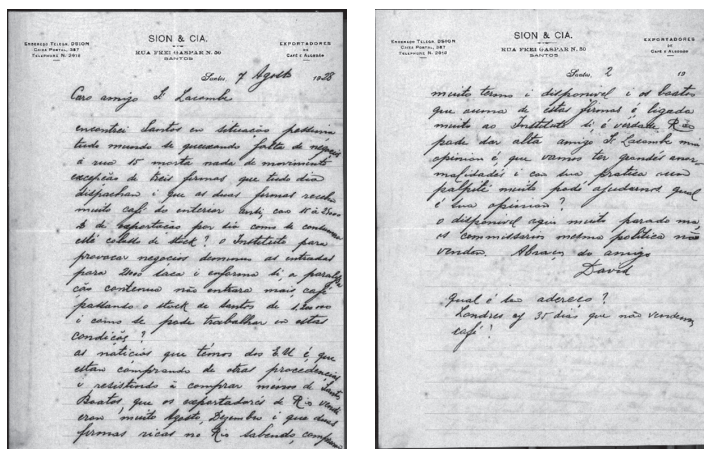 SION & CIA.
ENDEREÇO TELEGR. DSION
CAIXA POSTAL, 387
TELEPHONE N. 2910
RUA FREI GASPAR N. 30
SANTOS
EXPORTADORES
DE
CAFÉ E ALGODÃO
Santos, 7 Agosto 1928
Caro amigo J. Lacombe
encontrei Santos en situação pessima
tudo mundo se queixando falta de negocio
á rua 15 morta nada de movimento
excepção de treis firmas que tudo dia
dispachan i que as duas firmas recebe
muito café do enterior
de exportação por dia como se contenua
esté calado de stock? O Instituto para
provocar negocios as entradas
para 2000 saca i enforma si, a parali
ção contenua não entrara mais café
passando o stock de Santos de
i como se pode trabalhar en estas
condicõs?
as noticias que témos dos E.U é, que
estan comprando de otras procedencias
i resistindo á comprar menos de Santos
Boatos que os exportadores de Rio vende
eran muito Agosto, Dezembro i que duas
firmas ricas no Rio sabendo, compram
SION & CIA.
ENDEREÇO TELEGR. DSION
CAIXA POSTAL, 387
TELEPHONE N. 2910
RUA FREI GASPAR N. 30
SANTOS
EXPORTADORES
DE
CAFÉ E ALGODÃO
Santos, 2 19
muito termo i disponivel i os boatos
que acuma de estas firmas é ligada
muito ao Instituto si é verdade Rio
pode dar alta amigo J. Lacombe min
opinion é que vamos ter grandés anor-
malidadés i con sua pratica
palpité muito podé ajudarnos qual
é sua opinion?
O disponivel aqui muito parado mas
os commissarios mesma politica não
venden. Abraços do amigo
David
Qual é seu adereço?
Londres 35 dias que não vendemos
café!